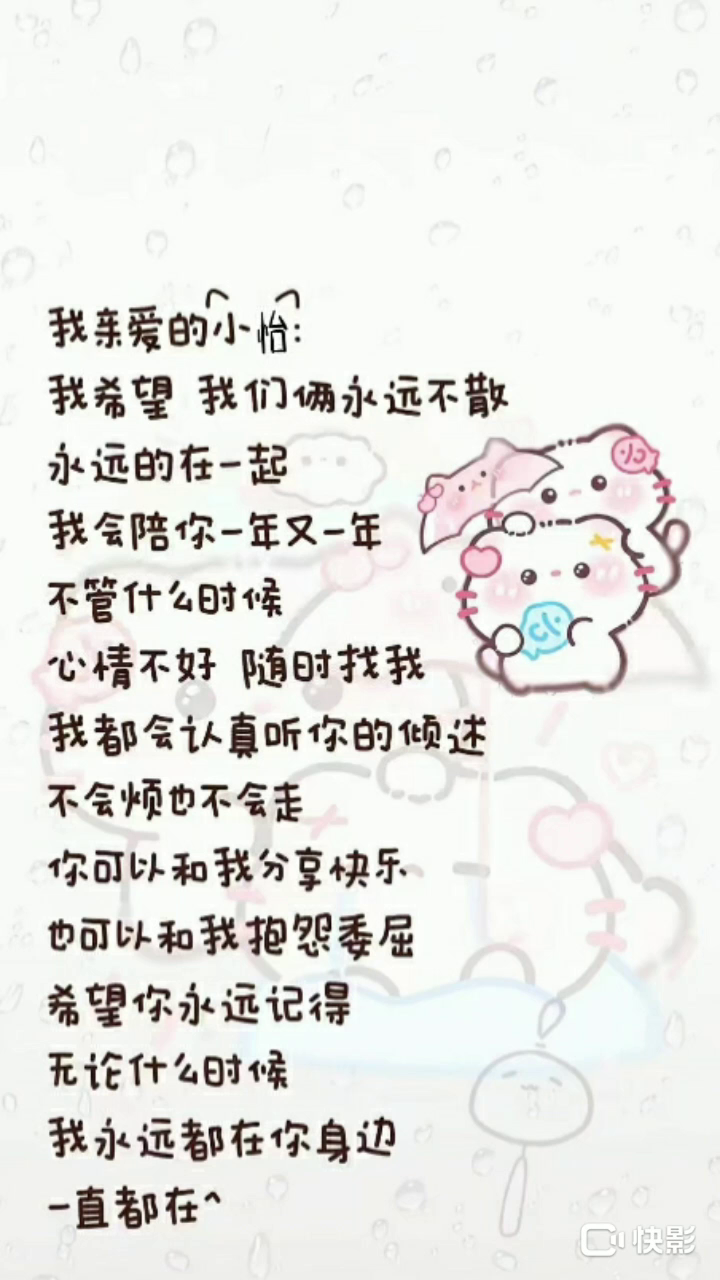 我亲爱的小怡:
我希望 我们俩永远不散
永远的在一起
我会陪你一年又一年
不管什么时候
心情不好 随时找我
我都会认真听你的倾述
不会烦也不会走
你可以和我分享快乐
也可以和我抱怨委屈
希望你永远记得
无论什么时候
我永远都在你身边
一直都在^
快影